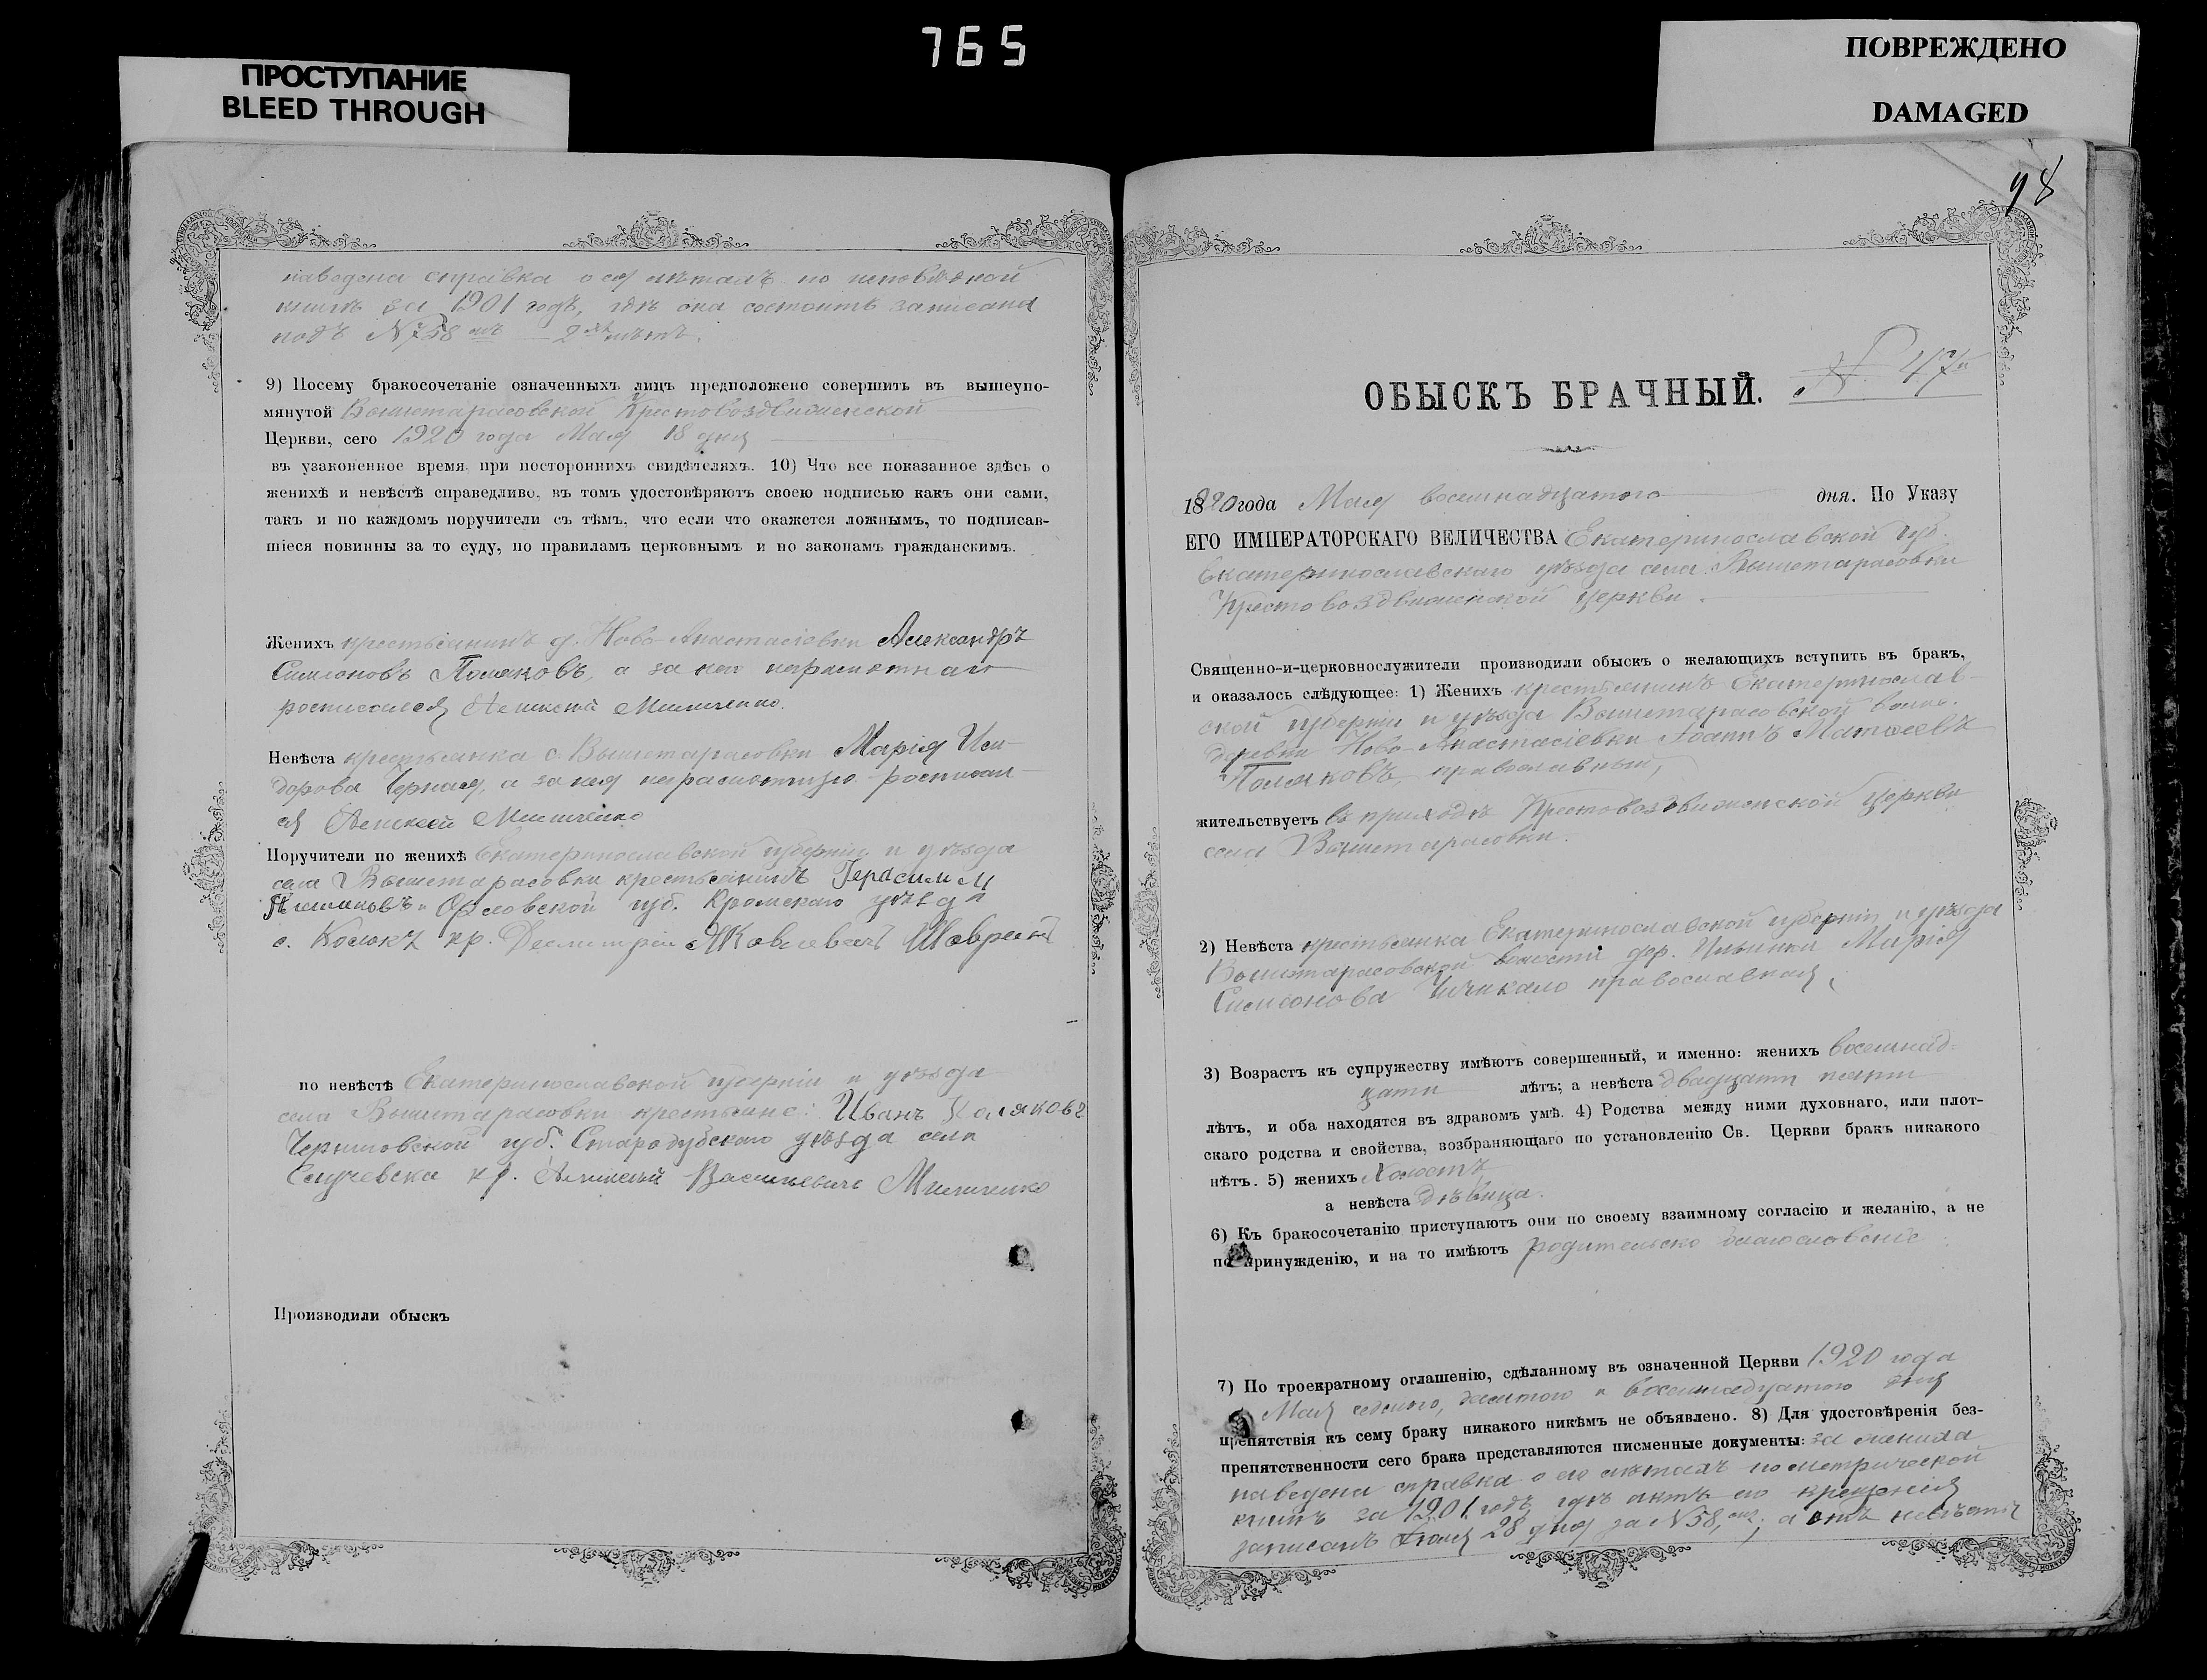 765
ПРОСТУПАНИЕ
BLEED THROUGH
ПОВРЕЖДЕНО
DAMAGED
98
наведена справка о ея лѣтахъ по исповѣдной
книгѣ за 1901 годъ, гдѣ она состоитъ записана
подъ №
9) Посему бракосочетаніе означенныхъ лицъ предположено совершить въ вышеупо-
мянутой Вышетарасовской Крестовоздвиженской
Церкви, сего 1920 года Мая 18 дня
въ узаконенное время при постороннихъ свидѣтеляхъ. 10) Что все показанное здѣсь о
женихѣ и невѣстѣ справедливо, въ томъ удостовѣряютъ своею подписью какъ они сами,
такъ и по каждомъ поручители съ тѣмъ, что если что окажется ложнымъ, то подписав-
шіеся повинны за то суду, по правиламъ церковнымъ и по законамъ гражданскимъ.
Женихъ крестьянинъ д. Ново-Анастасіевки Александръ
Симеоновъ Поляковъ, а за него неграмотнаго
росписался Алексей Мишченко.
Невѣста крестьянка с. Вышетарасовки Марія Иси-
дорова Черная, а за нея неграмотную росписал-
ся Алексей Мишченко
Поручители по женихѣ Екатеринославской губерніи и уѣзда
села Вышетарасовки крестьянинъ Герасим
Орловской губ. Кромскаго уѣзда
с. кр. Димитрій Яковлевичъ
по невѣстѣ Екатеринославской губерніи и уѣзда
села Вышетарасовки крестьяне: Иванъ Поляковъ
Черниговской губ. Стародубскаго уѣзда села
кр. Алексей Васильевичъ Мишченко
Производили обыскъ
ОБЫСКЪ БРАЧНЫЙ. № 47й
1820 года Мая восемнадцатаго дня. По Указу
ЕГО ИМПЕРАТОРСКАГО ВЕЛИЧЕСТВА Екатеринославской губ.
Екатеринославскаго уѣзда села Вышетарасовки
Крестовоздвиженской церкви.
Священно-и-церковнослужители производили обыскъ о желающихъ вступить въ бракъ,
и оказалось слѣдующее: 1) Женихъ крестьянинъ Екатеринослав-
ской губерніи и уѣзда Вышетарасовской волос.
деревни Ново-Анастасіевки Іоаннъ Матѳеевъ
Поляковъ, православный,
жительствуетъ въ приходѣ Крестовоздвиженской церкви
села Вышетарасовки.
2) Невѣста крестьянка Екатеринославской губерніи и уѣзда
Вышетарасовской волости дер. Ильинки Марія
Симеонова Чичикало православная,
3) Возрастъ къ супружеству имѣютъ совершенный, и именно: женихъ восемнад-
цати лѣтъ; а невѣста двадцати пяти
лѣтъ, и оба находятся въ здравомъ умѣ. 4) Родства между ними духовнаго, или плот-
скаго родства и свойства, возбраняющаго по установленію Св. Церкви бракъ никакого
нѣтъ. 5) женихъ Холостъ
а невѣста дѣвица.
6) Къ бракосочетанію приступаютъ они по своему взаимному согласію и желанію, а не
по принужденію, и на то имѣютъ родительско благословеніе
7) По троекратному оглашенію, сдѣланному въ означенной Церкви 1920 года
Мая седьмого, десятого и восемнадцатого дня
препятствія къ сему браку никакого никѣмъ не объявлено. 8) Для удостовѣренія без-
препятственности сего брака представляются писменные документы: за жениха
наведена справка о его лѣтахъ по метрической
книгѣ за 1901 годъ гдѣ актъ его крещенія
записанъ 28 дня за №58, а о невѣстѣ